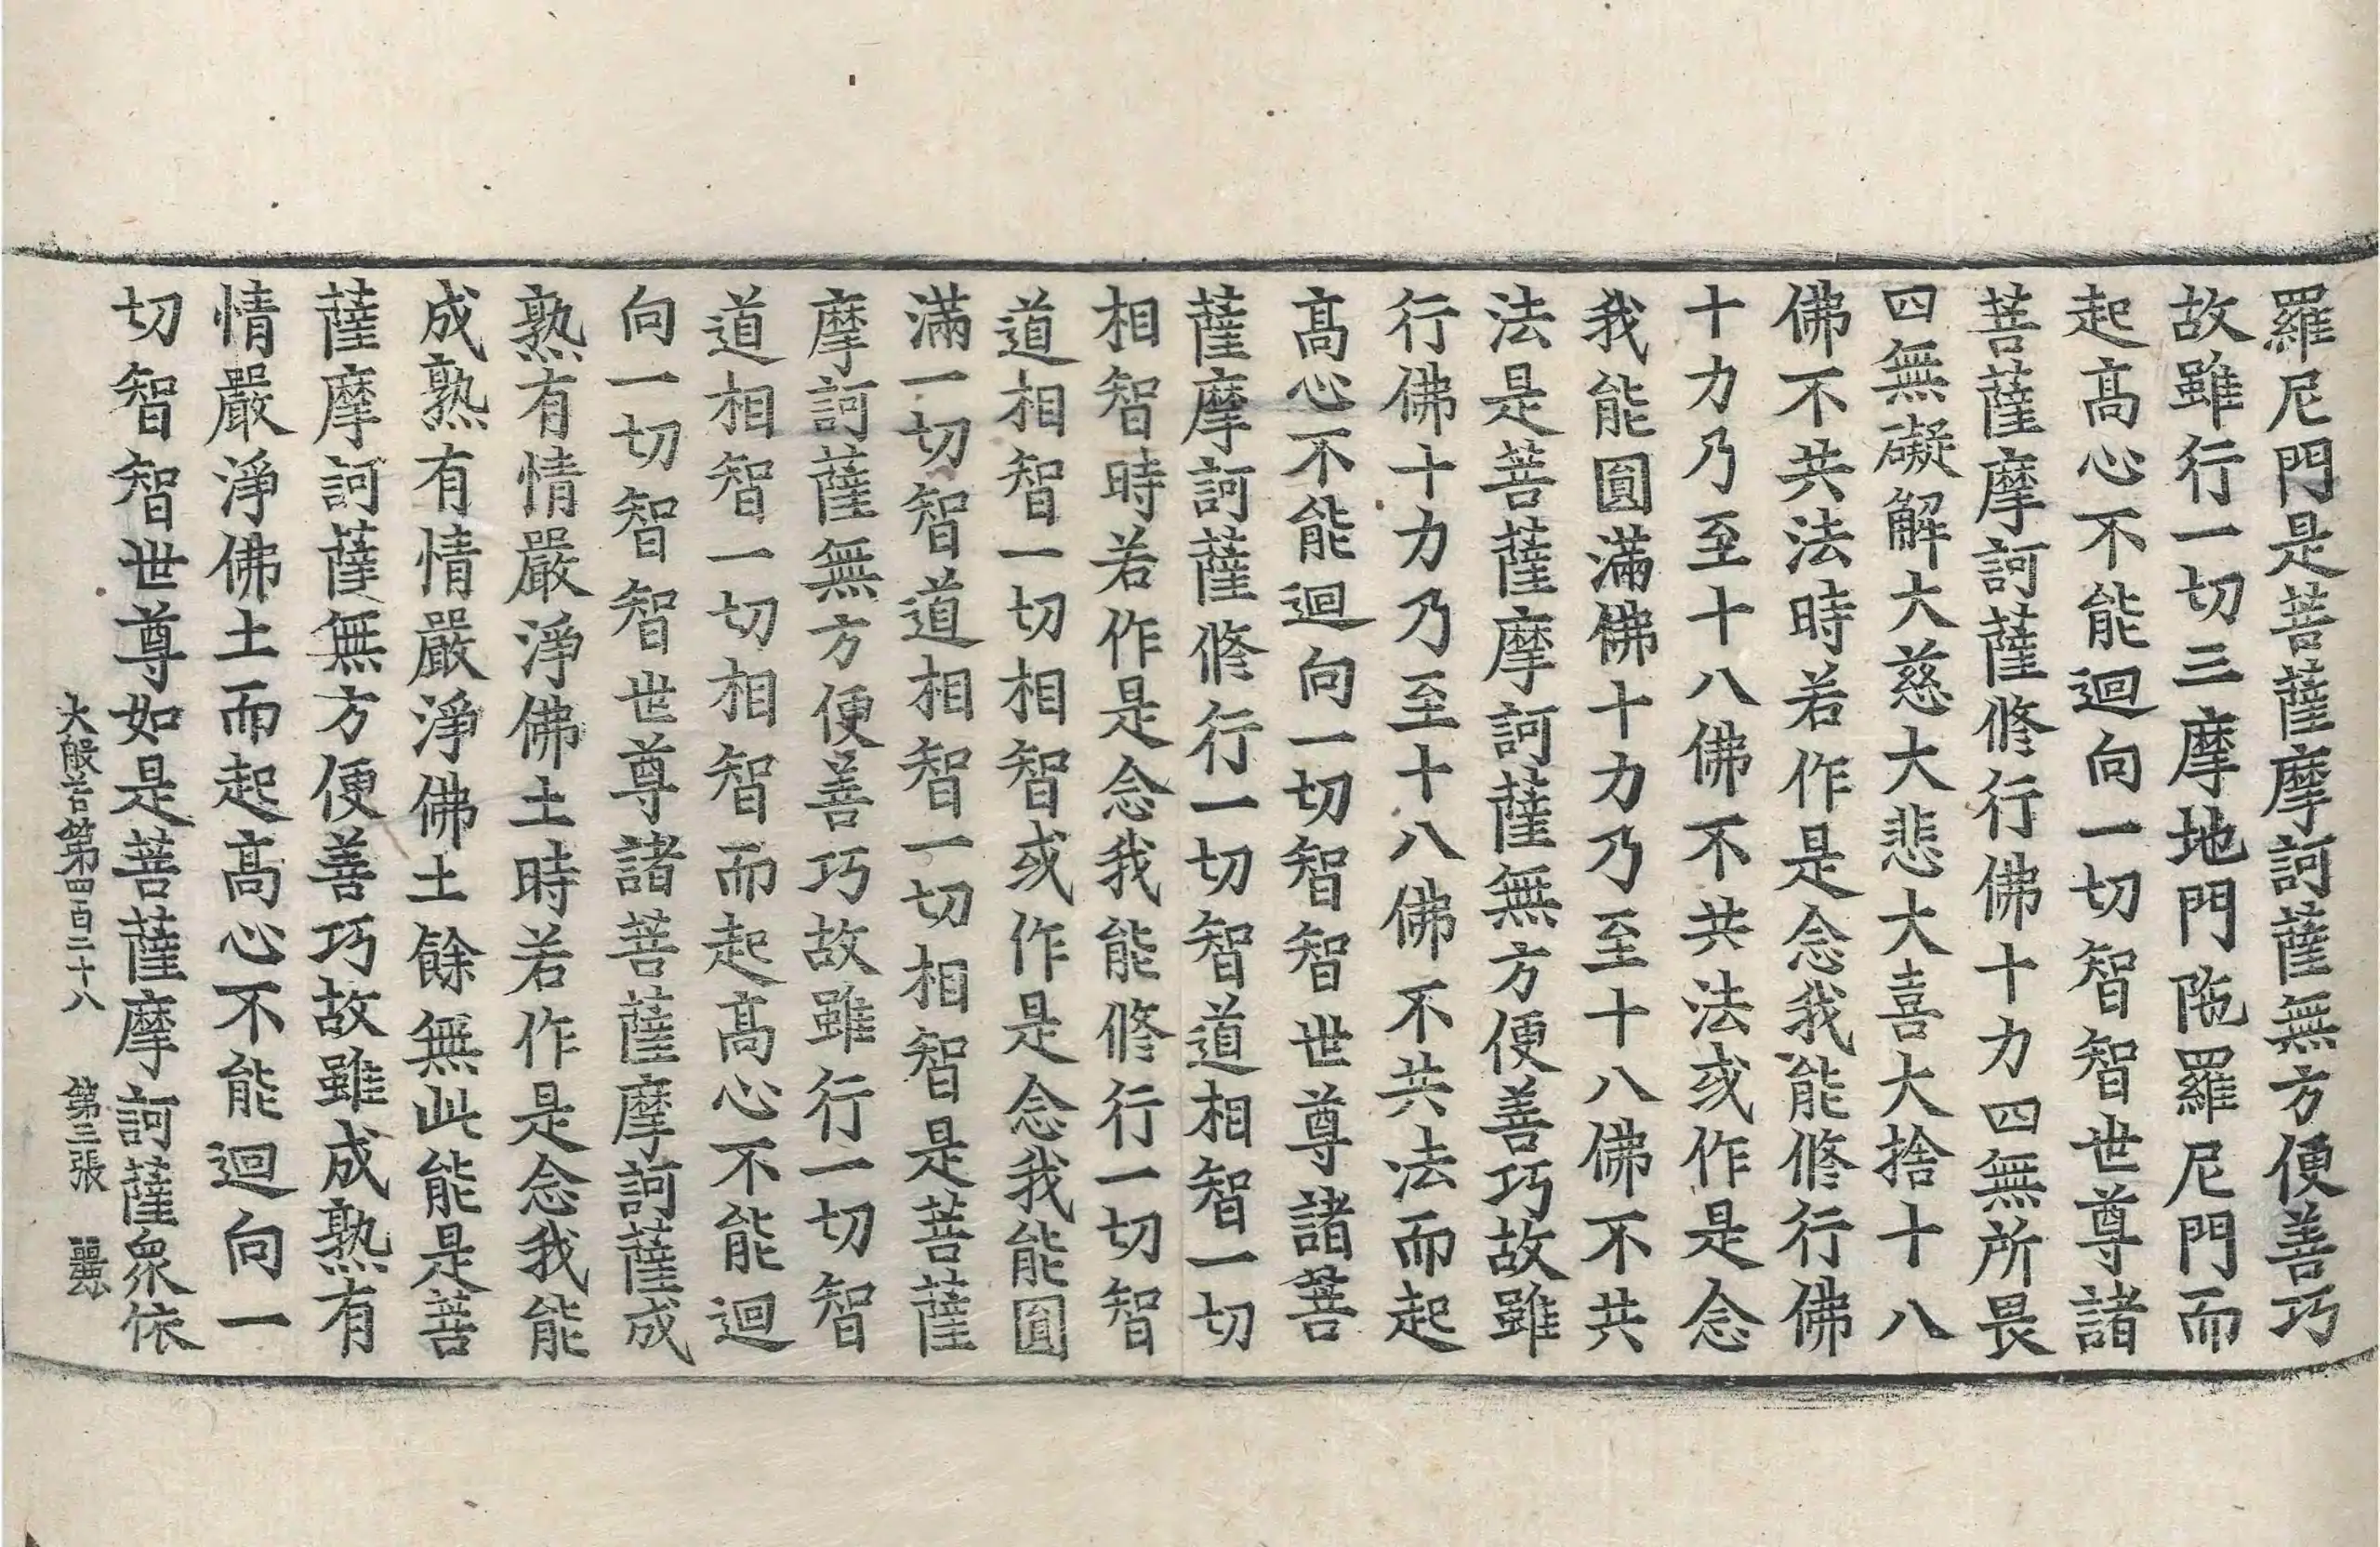 羅尼門是菩薩摩訶薩無方便善巧
故雖行一切三摩地門陁羅尼門而
起髙心不能迴向一切智智世尊諸
菩薩摩訶薩修行佛十力四無所畏
四無礙解大慈大悲大喜大捨十八
佛不共法時若作是念我能修行佛
十力乃至十八佛不共法或作是念
我能圓滿佛十力乃至十八佛不共
法是菩薩摩訶薩無方便善巧故雖
行佛十力乃至十八佛不共法而起
髙心不能迴向一切智智世尊諸菩
薩摩訶薩修行一切智道相智一切
相智時若作是念我能修行一切智
道相智一切相智或作是念我能圓
滿一切智道相智一切相智是菩薩
摩訶薩無方便善巧故雖行一切智
道相智一切相智而起髙心不能迴
向一切智智世尊諸菩薩摩訶薩成
熟有情嚴淨佛土時若作是念我能
成熟有情嚴淨佛土餘無此能是菩
薩摩訶薩無方便善巧故雖成熟有
情嚴淨佛土而起髙心不能迴向一
切智智世尊如是菩薩摩訶薩衆依
大般若第四百二十八 第三張 麗